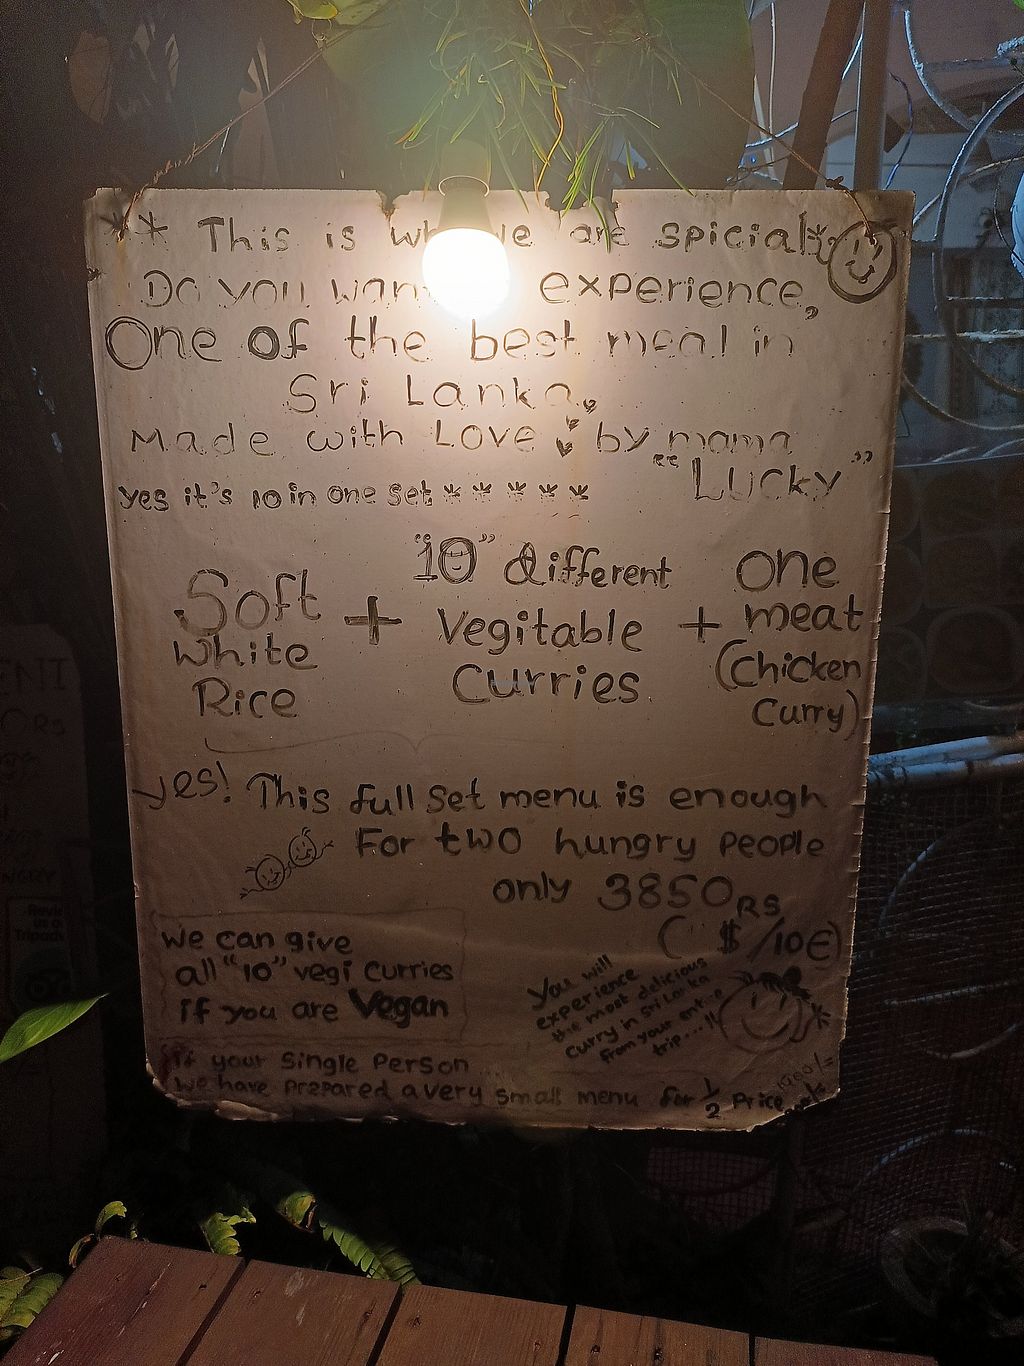 ** This is are spicial
Do you want experience,
One of the best meal in
Sri Lanka,
Made with Love by mama
"Lucky"
yes it's 10 in one set *****
Soft White Rice + "10" different Vegitable Curries + one meat (Chicken Curry)
yes! This full set menu is enough
For two hungry people
only 3850RS
($/10€)
We can give
all "10" vegi curries
if you are Vegan
You will
experience
the most delicious
curry in Sri Lanka
from your entire
trip...!!
if your Single Person
We have prepared a very small menu for 1/2 Price